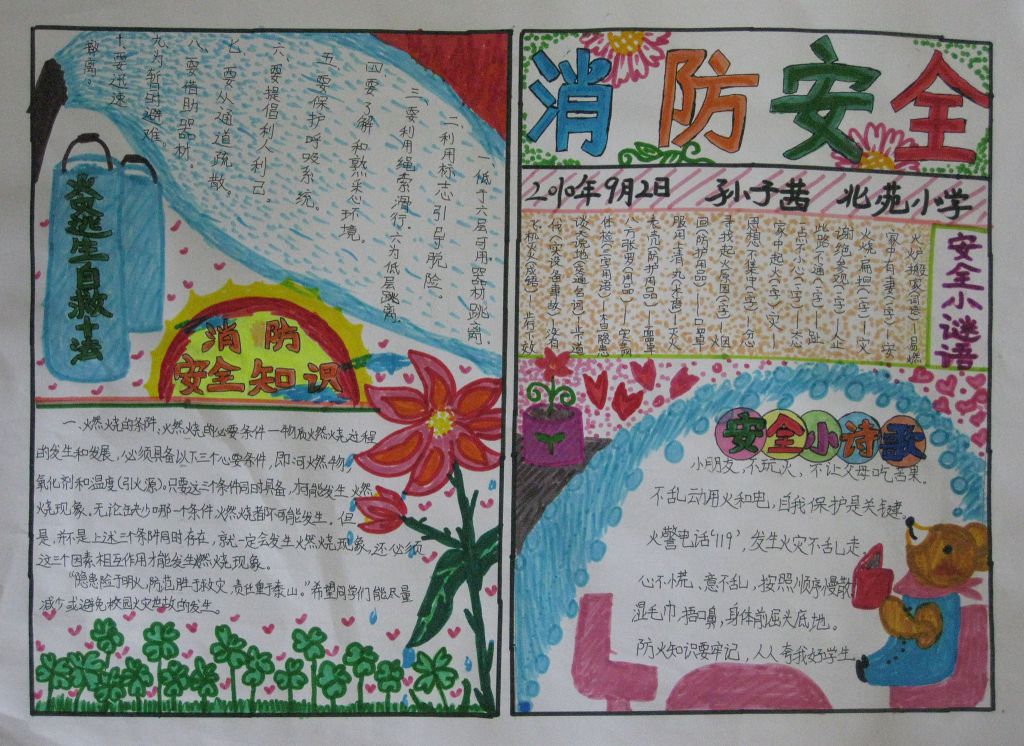 消防安全
2010年9月2日 孙子茜 北苑小学
安全小谜语
火炉搬家(词语)—易燃
家中有未妻(字)—安
火烧扁担(字)—灭
谢绝参观(字)—止
此路不通(字)—趾
一点不小心(字)—态
家中起火(字)—灾
思想不集中(字)—忿
寻找起火原因(字)—烟
面(防护用品)—口罩
服用清凉丸(术语)—灭火
老坑(防护用品)
八方张勇(用品)
体检(二字用语)—查隐患
谈天说地(交通名词)—
安全小诗歌
小朋友,不玩火,不让父母吃苦果。
不乱动用火和电,自我保护是关键。
火警电话“119”,发生火灾不乱走。
心不慌、意不乱,按照顺序慢散
湿毛巾,捂口鼻,身体前屈头底地。
防火知识要牢记,人人夸我好学生
火灾逃生自救十法
一、低于六层可用器材跳离。
二、利用标志引导脱险。
三、要利用绳索滑行,六为低层跳离.
四、要了解和熟悉环境.
五、要保护呼吸系统。
六、要提倡利人利己。
七、要从通道疏散。
八、要借助器材.
九、为暂时避难。
十、要迅速
撤离。
消防
安全知识
一、火燃烧的条件,火燃烧的必要条件一物质火燃烧过程
的发生和发展,必须具备以下三个必要条件,即:可燃物,
氧化剂和温度(引火源)。只要这三个条件同时具备,才可能发生火燃
烧现象,无论缺少哪一个条件火燃烧者不可能发生。但
是,并不是上述三个条件同时存在,就一定会发生火燃烧现象,还必须
这三个因素相互作用才能发生火燃烧现象。
“隐患险于明火,防范胜于救灾,责任重于泰山。”希望同学们能尽量
减少或避免校园火灾事故的发生。